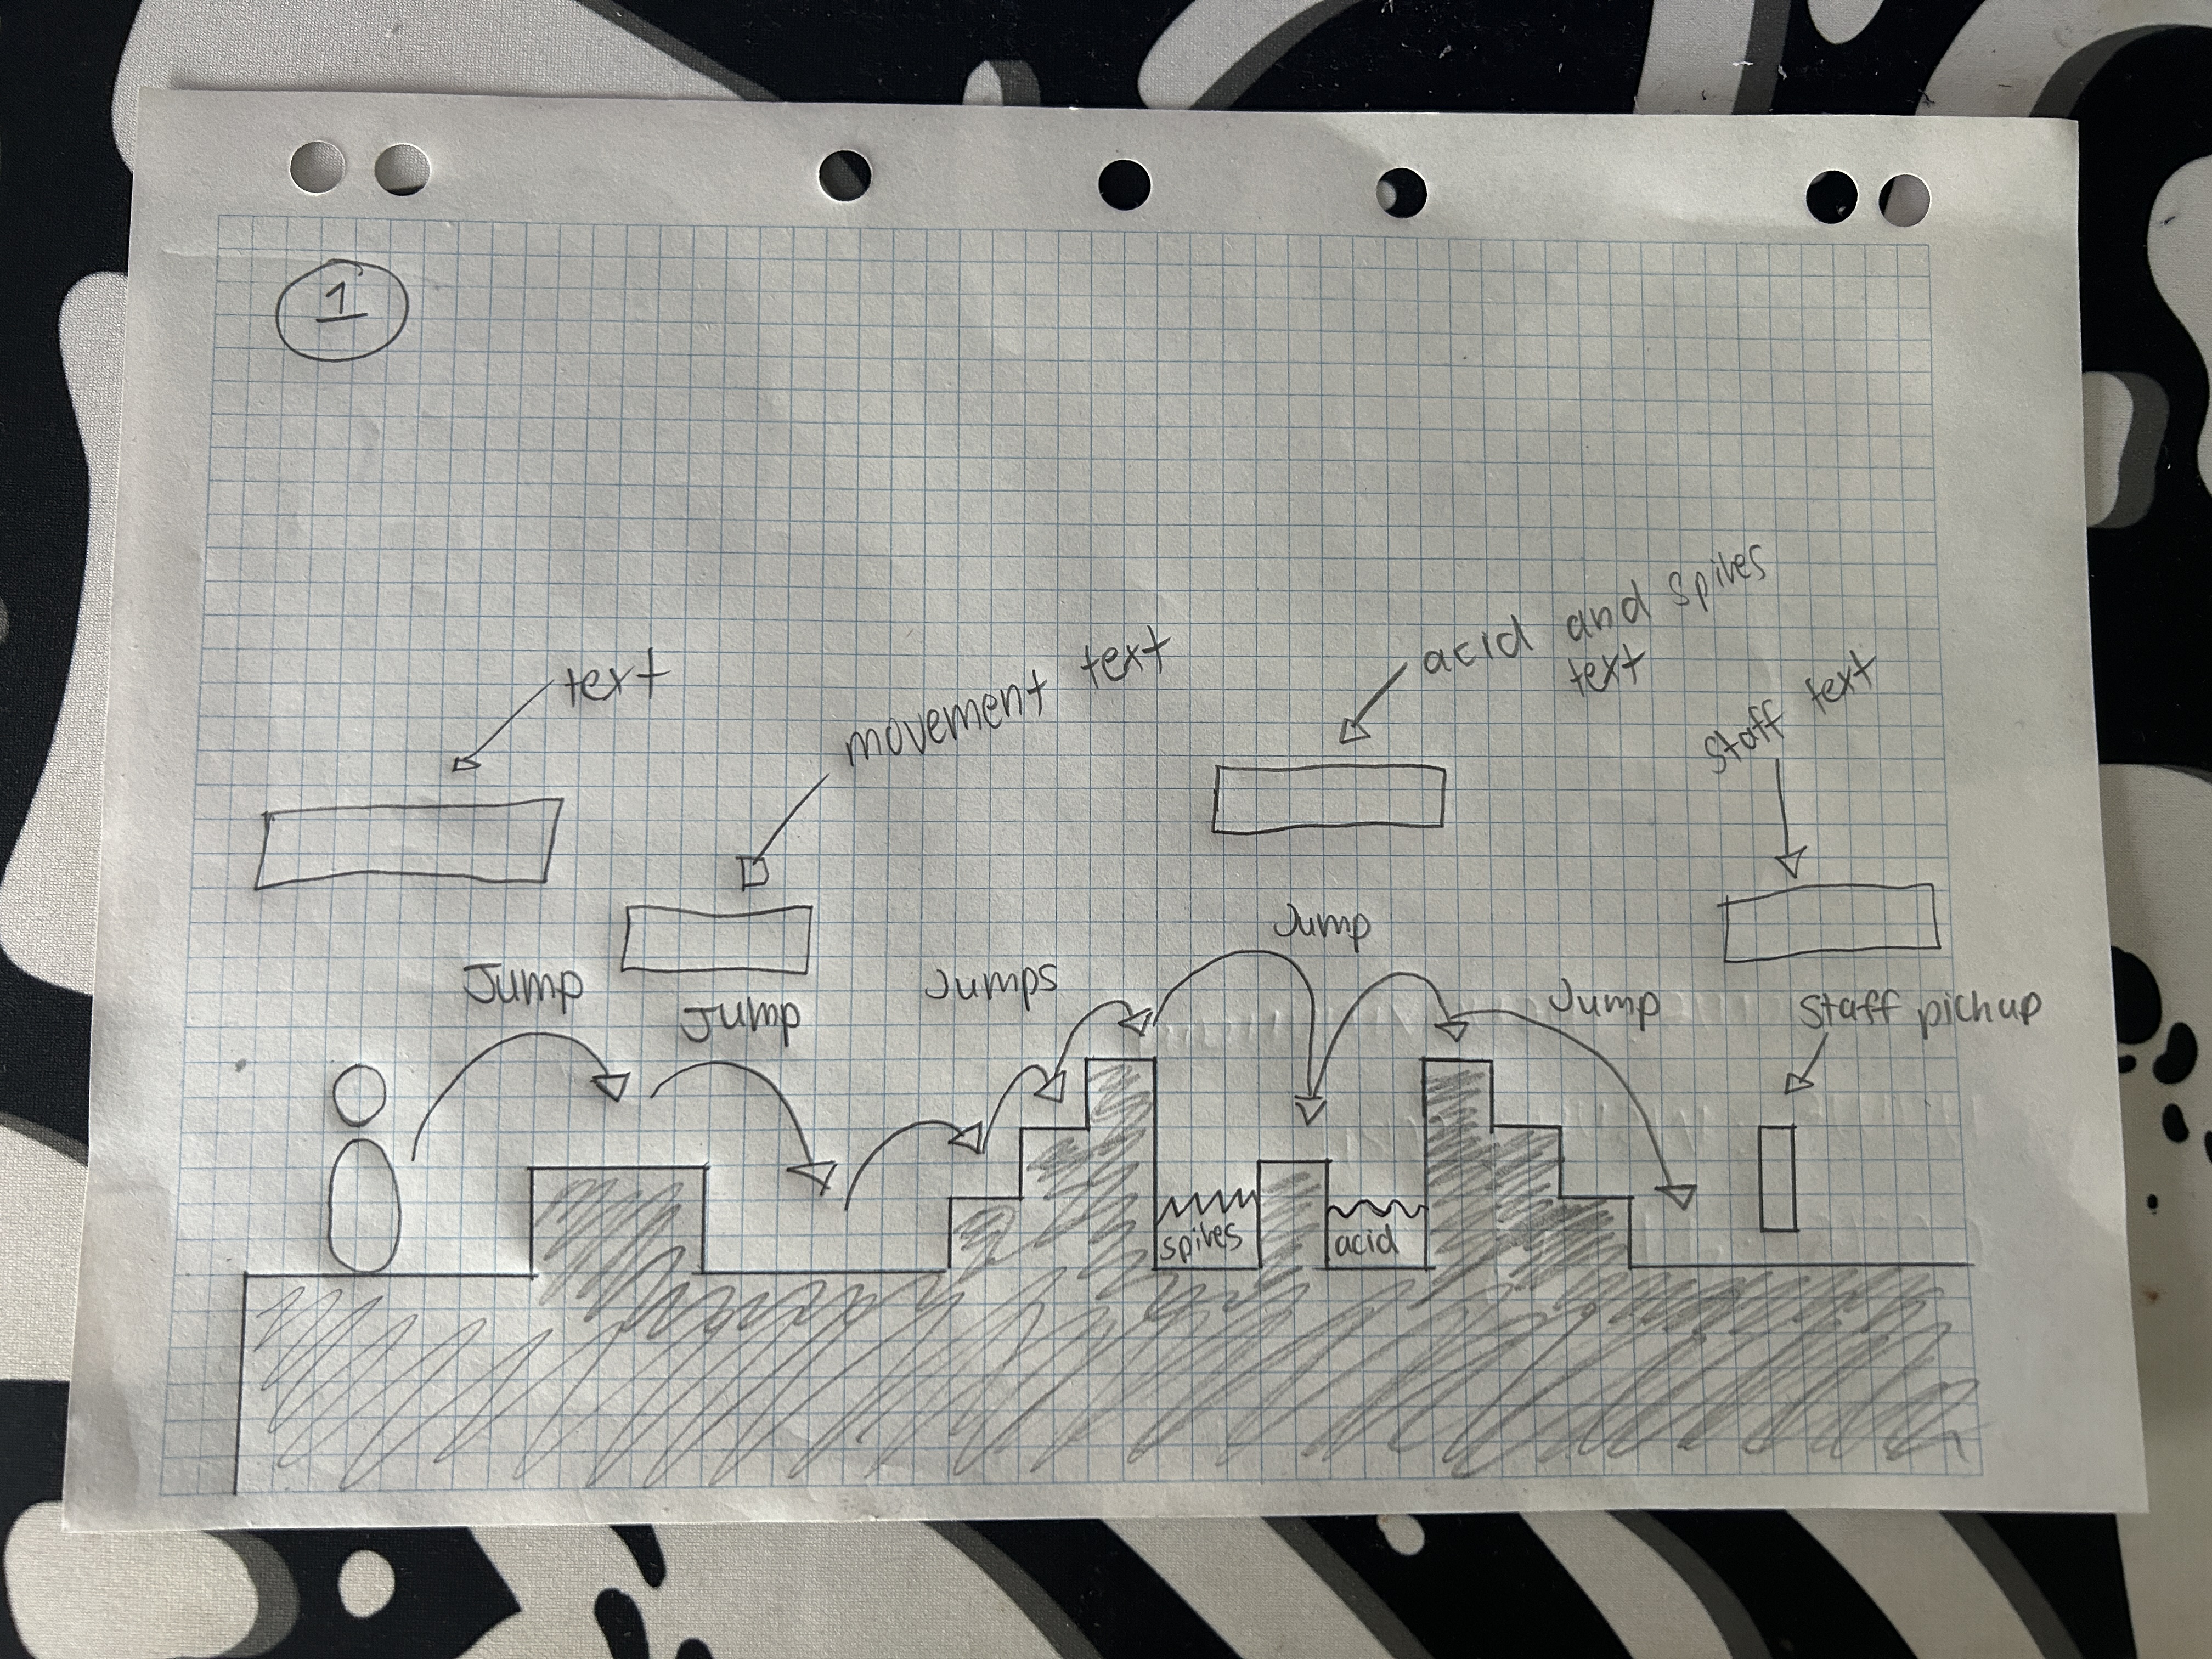 1
text
movement text
acid and spikes
text
staff text
Jump
Jump
Jumps
Jump
Jump
Staff pickup
spikes
acid